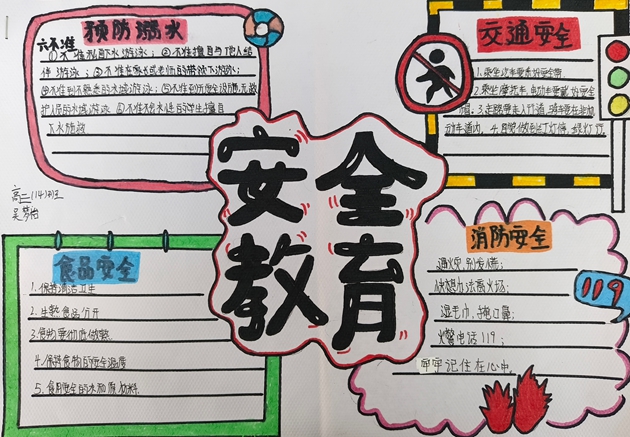 预防溺水
六不准
①不准私自下水游泳；②不准擅自与他人结
伴游泳；③不准在无家长或老师的带领下游泳；
④不准到不熟悉的水域游泳；⑤不准到无安全设施、无救
护人员的水域游泳 ⑥不准不会水性的学生擅自
下水施救
高二（14）班
安全
教育
交通安全
1.乘坐汽车要系安全带
2.乘坐摩托车、电动车要戴好安全
帽。3.走路要走人行道，骑车要在非机
动车道内。4.自觉做到红灯停，绿灯行
食品安全
1.保持清洁卫生
2.生熟食品分开
3.食物要彻底做熟
4.保持食物的安全温度
5.食用安全的水和原材料
消防安全
遇火灾，别发慌；
快想办法离火场；
湿毛巾，捂口鼻；
火警电话119；
牢牢记住在心中。
119